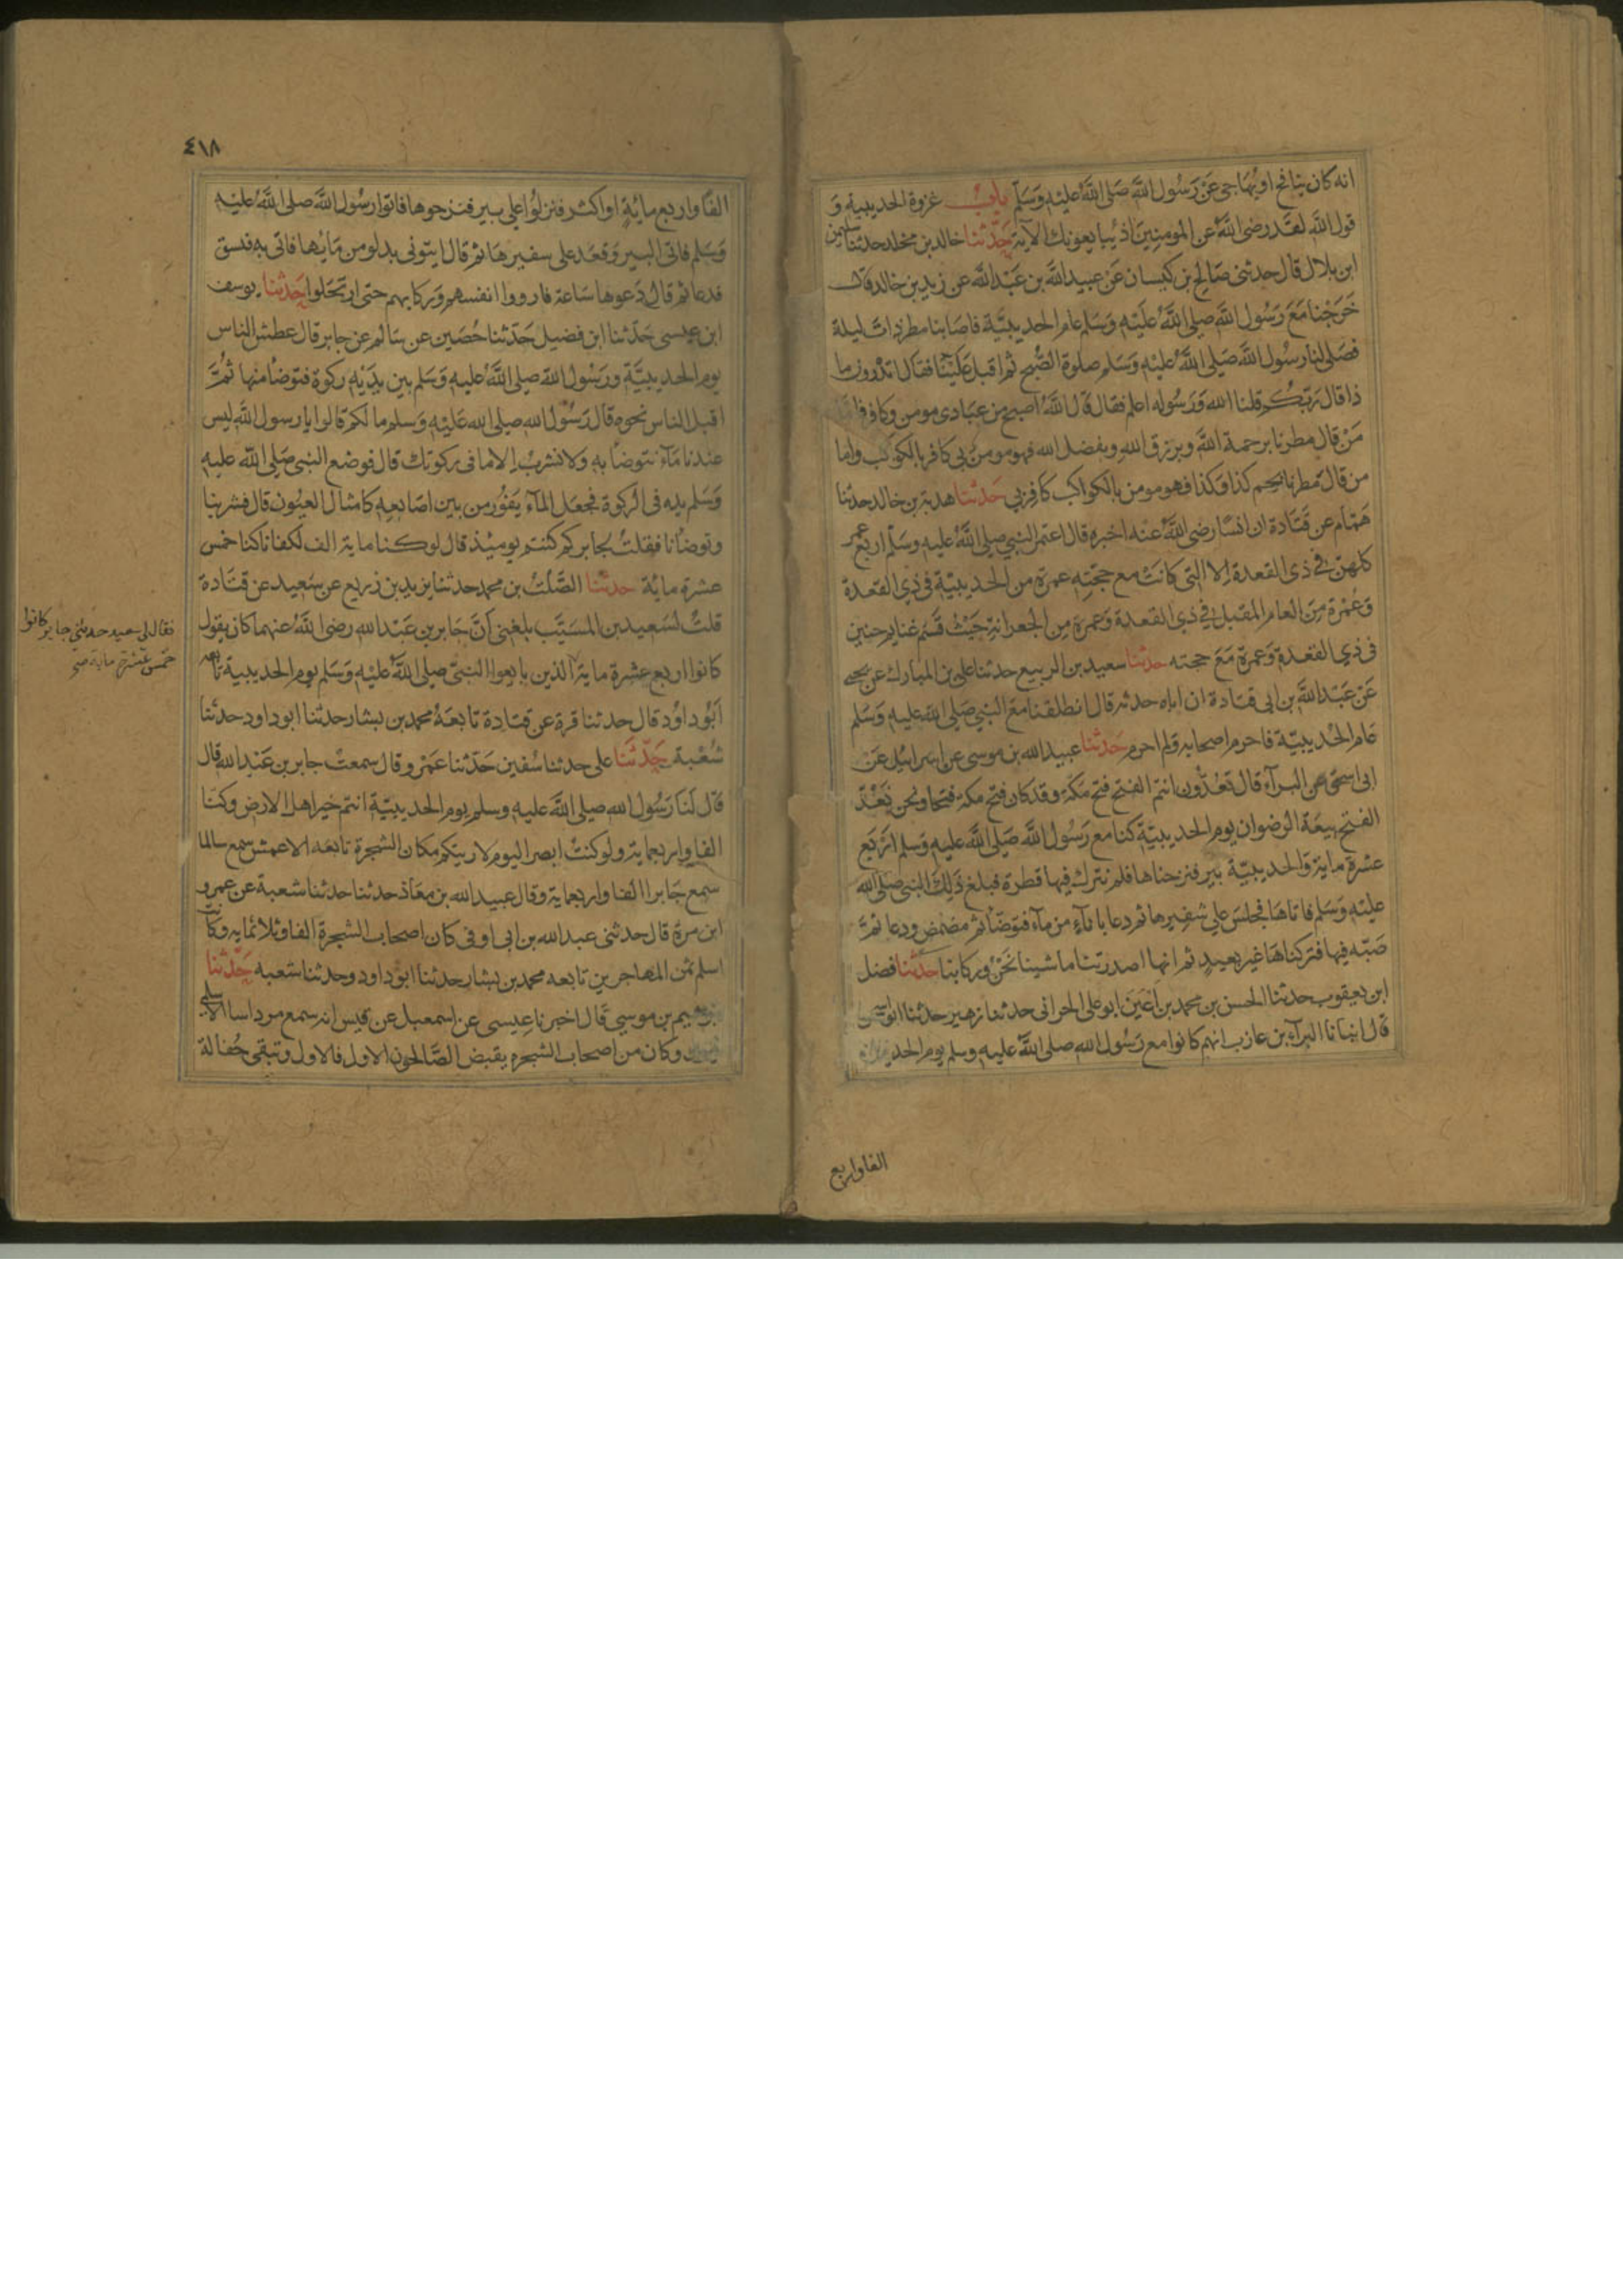 انه كان ينافح او يهاجى عن رسول الله صلى الله عليه وسلم باب غزوة الحديبية و
قول الله لقد رضى الله عن المومنين اذ يبايعونك الآية حدثنا خالد بن مخلد حدثنا سليمن
ابن بلال قال حدثنى صالح بن كيسان عن عبيد الله بن عبد الله عن زيد بن خالد قال
خرجنا مع رسول الله صلى الله عليه وسلم عام الحديبية فاصابنا مطر ذات ليلة
فصلى لنا رسول الله صلى الله عليه وسلم صلوة الصبح ثم اقبل علينا فقال اتدرون ما
ذا قال ربكم قلنا الله ورسوله اعلم فقال قال الله اصبح من عبادى مومن وكافر فاما
من قال مطرنا برحمة الله وبرزق الله وبفضل الله فهو مومن بى كافر بالكوكب واما
من قال مطرنا بنجم كذا وكذا فهو مومن بالكواكب كافر بى حدثنا هدبة بن خالد حدثنا
همام عن قتادة ان انسا رضى الله عنه اخبره قال اعتمر النبي صلى الله عليه وسلم اربع عمر
كلهن في ذى القعدة الا التى كانت مع حجته عمرة من الحديبية فى ذي القعدة
وعمرة من العام المقبل في ذي القعدة وعمرة من الجعرانة حيث قسم غنايم حنين
فى ذي القعدة وعمرة مع حجته حدثنا سعيد بن الربيع حدثنا على بن المبارك عن يحيى
عن عبد الله بن ابى قتادة ان اباه حدثه قال انطلقنا مع النبي صلى الله عليه وسلم
عام الحديبية فاحرم اصحابه ولم احرم حدثنا عبيد الله بن موسى عن اسرائيل عن
ابى اسحق عن البرآء قال تعدون انتم الفتح فتح مكة وقد كان فتح مكة فتحا ونحن نعد
الفتح بيعة الرضوان يوم الحديبية كنا مع رسول الله صلى الله عليه وسلم اربع
عشرة ماية والحديبية بير فنزحناها فلم نترك فيها قطرة فبلغ ذلك النبي صلى الله
عليه وسلم فاتاها فجلس علي شفيرها ثم دعا باناء من مآء فتوضأ ثم مضمض ودعا ثم
صبه فيها فتركناها غير بعيد ثم انها اصدرتنا ما شينا نحن وركابنا حدثنا فضل
ابن يعقوب حدثنا الحسن بن محمد بن اعين ابو على الحرانى حدثنا زهير حدثنا ابو اسحق
قال انبانا البرآء بن عازب انهم كانوا مع رسول الله صلى الله عليه وسلم يوم الحديبية
الفا واربع
٤١٨
الفا واربع ماية او اكثر فنزلوا على بير فنزحوها فاتوا رسول الله صلى الله عليه
وسلم فاتى البير وقعد على سفيرها ثم قال ايتونى بدلو من مايها فاتى به فبسق
فدعا ثم قال دعوها ساعة فارووا انفسهم وركابهم حتى ارتحلوا حدثنا يوسف
ابن عيسى حدثنا ابن فضيل حدثنا حصين عن سالم عن جابر قال عطش الناس
يوم الحديبية ورسول الله صلى الله عليه وسلم بين يديه ركوة فتوضأ منها ثم
اقبل الناس نحوه قال رسول الله صلى الله عليه وسلم ما لكم قالوا يا رسول الله ليس
عندنا مآء نتوضأ به ولا نشرب الا ما فى ركوتك قال فوضع النبي صلى الله عليه
وسلم يده فى الركوة فجعل المآء يفور من بين اصابعه كامثال العيون قال فشربنا
وتوضأنا فقلت لجابر كم كنتم يوميذ قال لو كنا ماية الف لكفانا كنا خمس
عشرة ماية حدثنا الصلت بن محمد حدثنا يزيد بن زريع عن سعيد عن قتادة
قلت لسعيد بن المسيب بلغنى ان جابر بن عبد الله رضى الله عنهما كان يقول
كانوا اربع عشرة ماية الذين بايعوا النبى صلى الله عليه وسلم يوم الحديبية تابعه
ابو داود قال حدثنا قرة عن قتادة تابعه محمد بن بشار حدثنا ابو داود حدثنا
شعبة حدثنا على حدثنا سفين حدثنا عمرو قال سمعت جابر بن عبد الله قال
قال لنا رسول الله صلى الله عليه وسلم يوم الحديبية انتم خير اهل الارض وكنا
الفا واربعماية ولو كنت ابصر اليوم لاريتكم مكان الشجرة تابعه الاعمش سمع سالما
سمع جابرا الفا واربعماية وقال عبيد الله بن معاذ حدثنا حدثنا شعبة عن عمرو
ابن مرة قال حدثنى عبد الله بن ابى اوفى كان اصحاب الشجرة الفا وثلاثماية وكانت
اسلم ثمن المهاجرين تابعه محمد بن بشار حدثنا ابو داود وحدثنا شعبه حدثنا
ابرهيم بن موسي قال اخبرنا عيسى عن اسمعيل عن قيس انه سمع مرداسا الاسلمى
وكان من اصحاب الشجره يقبض الصالحون الاول فالاول وتبقى حفالة
فقال لى سعيد حدثني جابر كانوا
خمس عشرة ماية صح